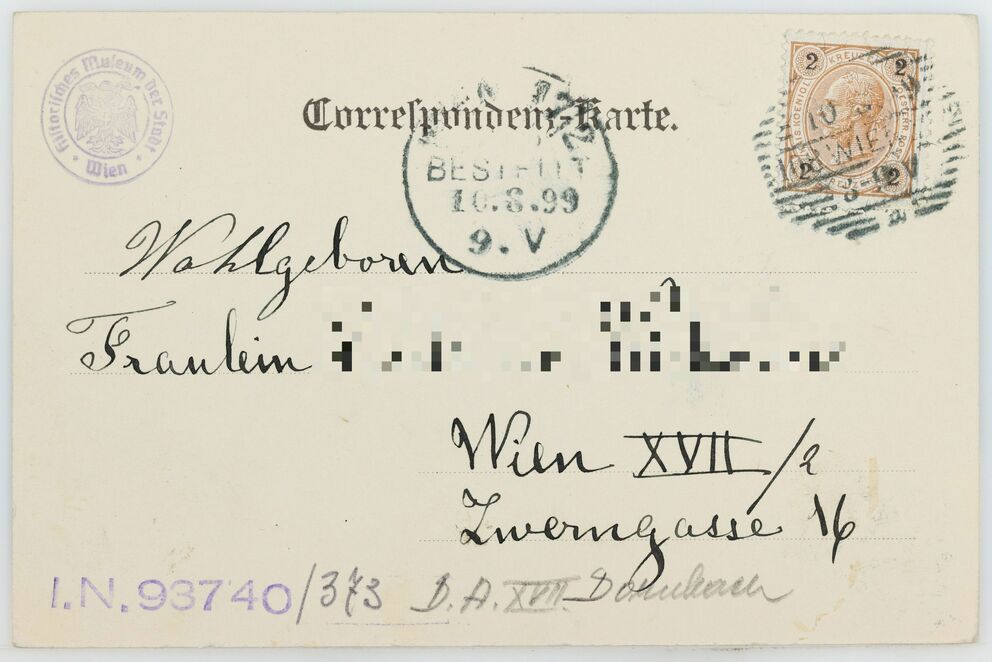 Historisches Museum der Stadt
Wien
Correspondenz-Karte.
BESTELLT
10.8.99
9.V
2 KREUZER 2
2 2
WIEN
Wohlgeboren
Fraulein
Wien XVII/2
Zwerngasse 16
I.N. 93740/373 B.A. XVII. Dornbach